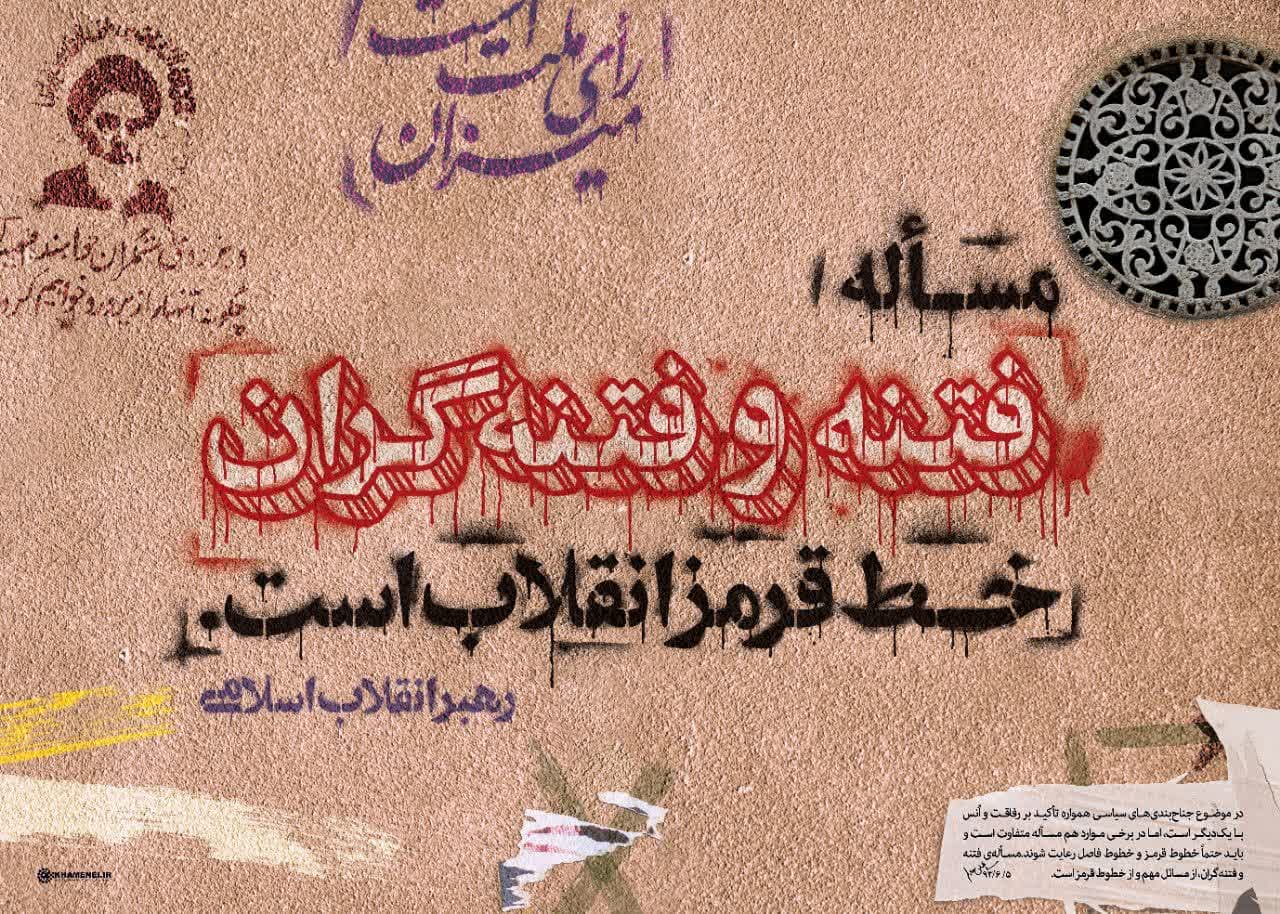 است
رأی ملت
میزان
مسأله‌ی
فتنه و فتنه‌گران
خط قرمز انقلاب است.
رهبر انقلاب اسلامی
در موضوع جناح‌بندی‌های سیاسی همواره تأکید بر رفاقت و اُنس
با یک‌دیگر است، اما در برخی موارد هم مسأله متفاوت است و
باید حتماً خطوط قرمز و خطوط فاصل رعایت شوند.مسأله‌ی فتنه
و فتنه‌گران، از مسائل مهم و از خطوط قرمز است. ۹۳/۶/۵
KHAMENEI.IR